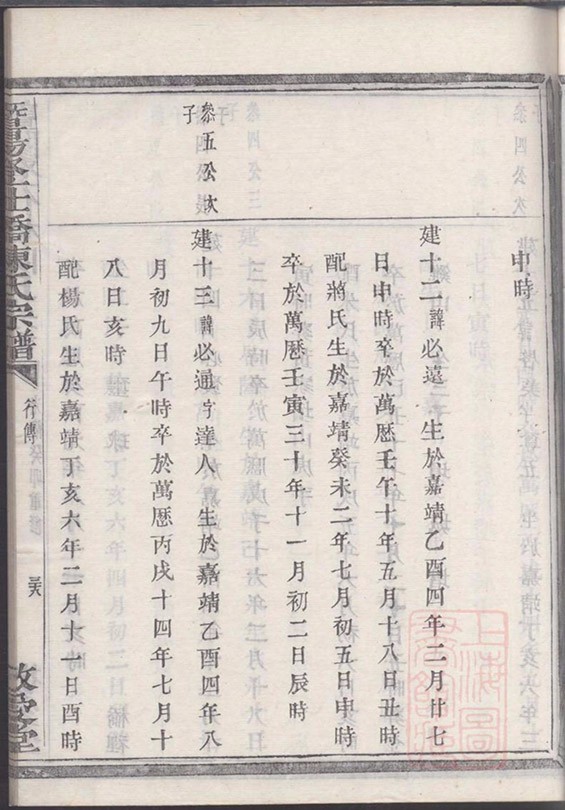 申時
建十二諱必遠　生於嘉靖乙酉四年二月廿七
日申時卒於萬歷壬午十年五月十八日丑時
配蔣氏生於嘉靖癸未二年七月初五日申時
卒於萬歷壬寅三十年十一月初二日辰時
叅五公次
子
建十三諱必通字達人生於嘉靖乙酉四年八
月初九日午時卒於萬歷丙戌十四年七月十
八日亥時
配楊氏生於嘉靖丁亥六年二月十一日酉時
橋陳氏宗譜
行傳